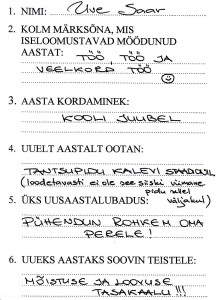 1. NIMI: Uve Saar
2. KOLM MÄRKSÕNA, MIS
ISELOOMUSTAVAD MÖÖDUNUD
AASTAT: TÖÖ, TÖÖ JA
VEELKORD TÖÖ
3. AASTA KORDAMINEK:
KOOLI JUUBEL
4. UUELT AASTALT OOTAN:
TANTSUPIDU KALEVI STAADIONIL
(loodetavasti ei ole see siiski viimane
pidu sellel
5. ÜKS UUSAASTALUBADUS: väljakul)
PÜHENDUN ROHKEM OMA
PERELE!
6. UUEKS AASTAKS SOOVIN TEISTELE:
MÕISTUSE JA LOOVUSE
TASAKAALU!!!